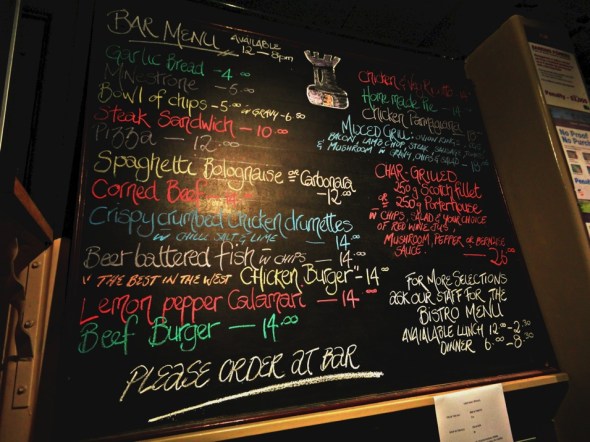 BAR MENU AVAILABLE 12 — 8pm
Garlic Bread - 4.00
MiNestrone - 5.00
Bowl of chips - 5.00 w GRAVY - 6.00
Steak Sandwich — 10.00
Pizza — 12.00
Spaghetti Bolognaise OR Carbonara — 12.00
Corned Beef
Crispy crumbed chicken drumettes
w CHILLI SALT & LIME — 14.00
Beer battered fish w CHIPS — 14.00
"THE BEST IN THE WEST CHicken Burger" - 14.00
Lemon pepper Calamari — 14.00
Beef Burger — 14.00
PLEASE ORDER AT BAR
Chicken
Home Made Pie
Chicken Parmagiana
MIXED GRILL:
BACON, LAMB CHOP, STEAK, SAUSAGE
& MUSHROOM w GRAVY, CHIPS & SALAD
CHAR-GRILLED
250g Scotch fillet
or 250g Porterhouse
w CHIPS, SALAD & YOUR CHOICE
OF RED WINE JUS,
MUSHROOM, PEPPER OR BERNAISE
SAUCE. — 25.00
FOR MORE SELECTIONS
ASK OUR STAFF FOR THE
BISTRO MENU
AVAIALABLE LUNCH 12.00 - 2.30
DINNER 6.00 - 8.30
No Proof